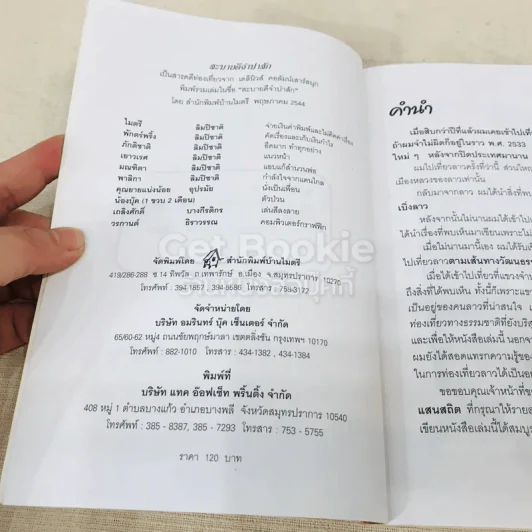 สะบายดีจำปาสัก
เป็นสารคดีท่องเที่ยวจาก เดลินิวส์ คอลัมน์เสาร์สนุก
พิมพ์รวมเล่มในชื่อ "สะบายดีจำปาสัก"
โดย สำนักพิมพ์บ้านไมตรี พฤษภาคม 2544
ไมตรี ลิมปิชาติ จ่ายเงินค่าพิมพ์และไม่คิดค่าเรื่อง
พักตร์พริ้ง ลิมปิชาติ คัดเรื่องและเก็บเงินกำไร
ภักติชาติ ลิมปิชาติ ยืดมาก ทำทุกอย่าง
เยาวเรศ ลิมปิชาติ แนวหน้า
มณฑิตา ลิมปิชาติ แอบแก้สำนวนพ่อ
พาลิกา ลิมปิชาติ กำลังใจจากแดนไกล
คุณยายแน่งน้อย อุปรมัย นั่งเป็นเพื่อน
น้องบุ๊ค (1 ขวบ 2 เดือน) ตัวป่วน
เถลิงศักดิ์ บางกีรติกร เล่นสีลงลาย
วรกานต์ ธิราวรรณ คอมพิวเตอร์กราฟฟิก
จัดพิมพ์โดย สำนักพิมพ์บ้านไมตรี
419/286-288 ซ.14 ทิพวัล ถ.เทพารักษ์ อ.เมือง จ.สมุทรปราการ 10270
โทรศัพท์ : 394-1857, 394-8586 โทรสาร : 759-3172
จัดจำหน่ายโดย
บริษัท อมรินทร์ บุ๊ค เซ็นเตอร์ จำกัด
65/60-62 หมู่4 ถนนชัยพฤกษ์มาลา เขตตลิ่งชัน กรุงเทพฯ 10170
โทรศัพท์ : 882-1010 โทรสาร : 434-1382 , 434-1384
พิมพ์ที่
บริษัท แทค อ๊อฟเซ็ท พริ้นติ้ง จำกัด
408 หมู่ 1 ตำบลบางแก้ว อำเภอบางพลี จังหวัดสมุทรปราการ 10540
โทรศัพท์ : 385 - 8387, 385 - 7293 โทรสาร : 753 - 5755
ราคา 120 บาท
Get Bookie
คำนำ
เมื่อสิบกว่าปีที่แล้วผมเคยเข้าไปเที่
ถ้าผมจำไม่ผิดก็อยู่ในราว พ.ศ. 2533
ใหม่ ๆ หลังจากปิดประเทศมานาน
ผมไปเที่ยวลาวครั้งที่ว่านี้ ส่วนใหญ่
เมืองหลวงของลาวเท่านั้น
กลับมาจากลาว ผมได้นำสิ่งที่พบ
เบิ่งลาว
หลังจากนั้นไม่นานผมได้เข้าไป
ได้นำเรื่องที่พบเห็นมาเขียนเพราะไม่
เมื่อไม่นานมานี้เอง ผมได้รับ
ไปเที่ยวลาวตามเส้นทางวัฒนธรร
เมื่อได้เข้าไปเที่ยวที่แขวงจำ
ถึงสิ่งที่ได้พบเห็น ทั้งนี้ก็เพราะแข
เป็นอยู่ของคนลาวที่น่าสนใจ เ
ท่องเที่ยวทางธรรมชาติที่ยังบริสุ
และเพื่อให้หนังสือเล่มนี้ นอกจา
ผมยังได้สอดแทรกความรู้ของ
ในการท่องเที่ยวลาวได้เป็นอย่
ขอขอบคุณเจ้าหน้าที่ช
แสนสถิต ที่กรุณาให้ราย
เขียนหนังสือเล่มนี้ได้สมบูร